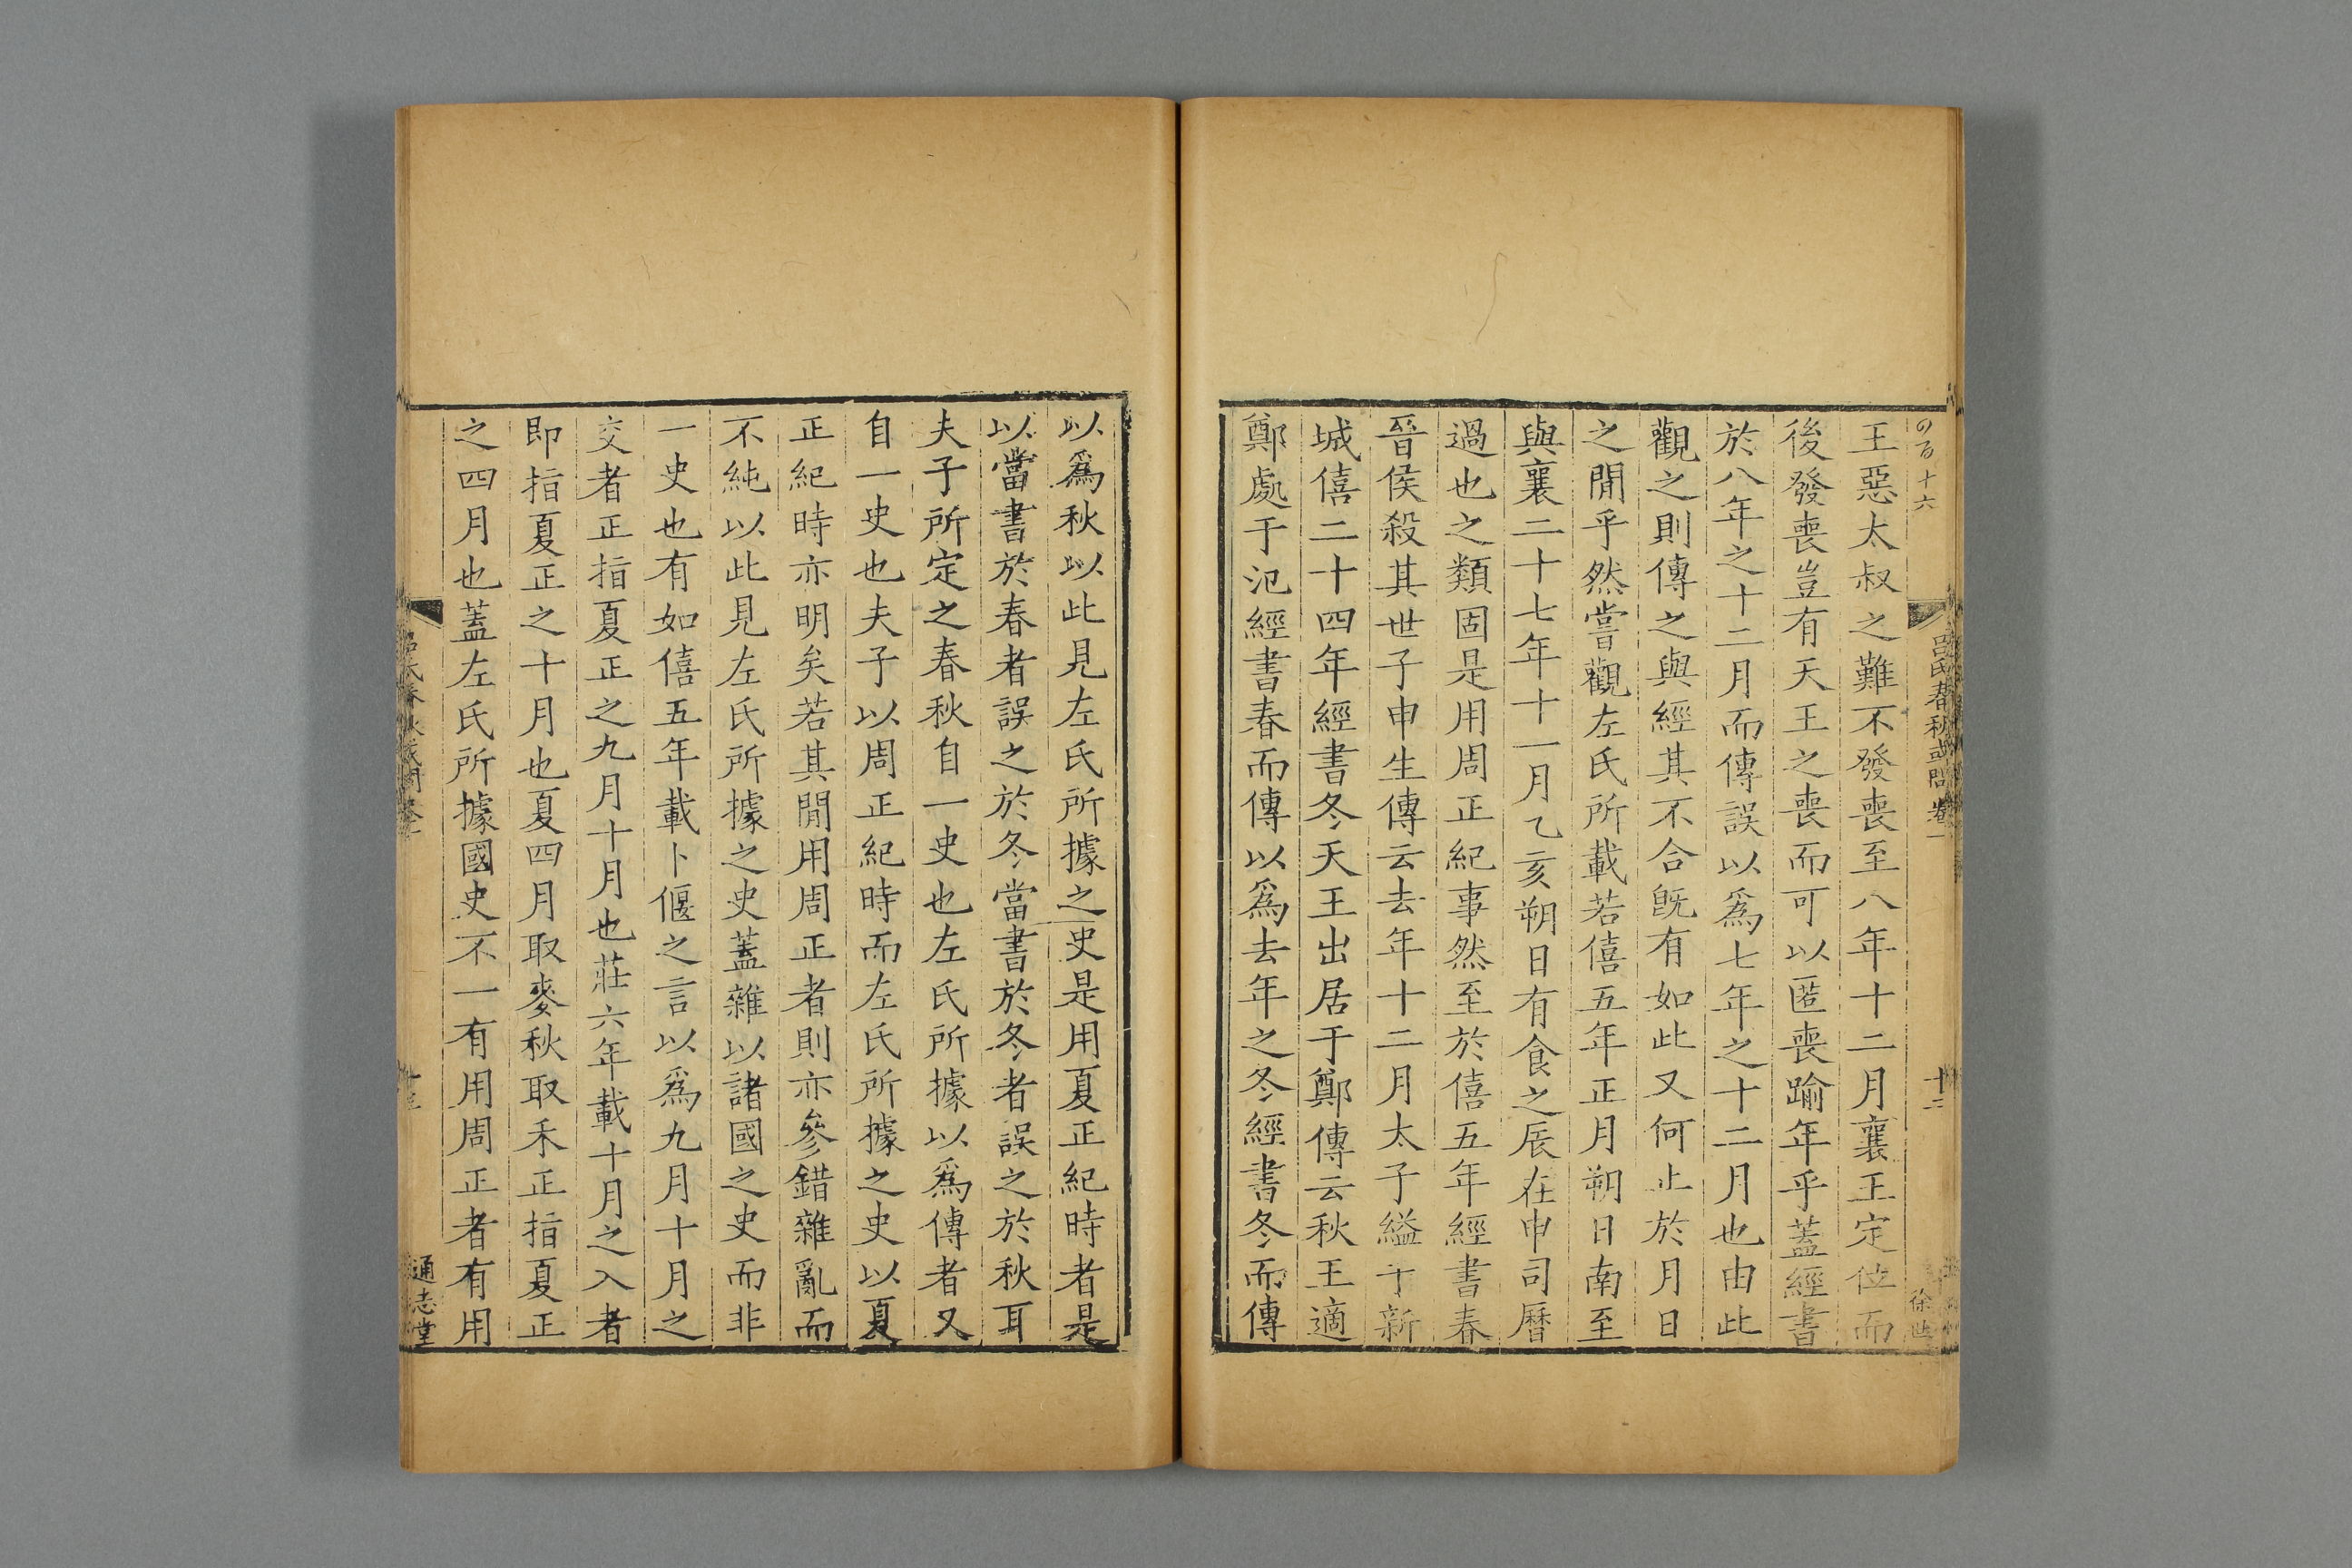 王惡太叔之難不發喪至八年十二月襄王定位而
後發喪豈有天王之喪而可以匿喪踰年乎蓋經書
於八年之十二月而傳誤以爲七年之十二月也由此
觀之則傳之與經其不合旣有如此又何止於月日
之閒乎然嘗觀左氏所載若僖五年正月朔日南至
與襄二十七年十一月乙亥朔日有食之辰在申司曆
過也之類固是用周正紀事然至於僖五年經書春
晉侯殺其世子申生傳云去年十二月太子縊于新
城僖二十四年經書冬天王出居于鄭傳云秋王適
鄭處于氾經書春而傳以爲去年之冬經書冬而傳
呂氏春秋或問卷一
十二
徐世
以爲秋以此見左氏所據之史是用夏正紀時者是
以當書於春者誤之於冬當書於冬者誤之於秋耳
夫子所定之春秋自一史也左氏所據以爲傳者又
自一史也夫子以周正紀時而左氏所據之史以夏
正紀時亦明矣若其閒用周正者則亦參錯雜亂而
不純以此見左氏所據之史蓋雜以諸國之史而非
一史也有如僖五年載卜偃之言以爲九月十月之
交者正指夏正之九月十月也莊六年載十月之入者
即指夏正之十月也夏四月取麥秋取禾正指夏正
之四月也蓋左氏所據國史不一有用周正者有用
通志堂